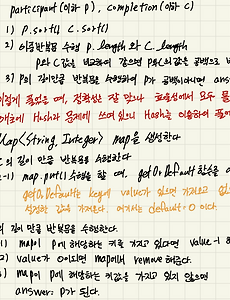 participant (이하 P), completion (이하 C)
1) P.sort() C.sort()
2) 이중반복문 수행 P.length 와 C.length
P와 C값을 비교하여 같으면 P와C의 값을 공백으로
3) P의 길이만큼 반복문을 수행하여 P가 공백이아니면 ans
이렇게 풀었을 때, 정확성은 잘 맞으나 효율성에서 모두
때문에 Hash라 문제에 쓰여 있으니 Hash를 이용하여 풀어
Map<String, Integer> map을 생성한다
C의 길이 만큼 반복문을 수행한다
-1) map.put()수행을 할 때, getOrDefault 함수를
getOrDefault는 key에 value가 있으면 가져오고 없
설정한 값을 가져온다. 여기서는 default : 0 이다.
의 길이 만큼 반복문을 수행한다.
1) map에 P에 해당하는 키를 가지고 있다면 value -1
2) value가 0이되면 map에서 remove 해준다.
3) map에 P에 해당하는 키값을 가지고 있지 않으면
answer : P가 된다.